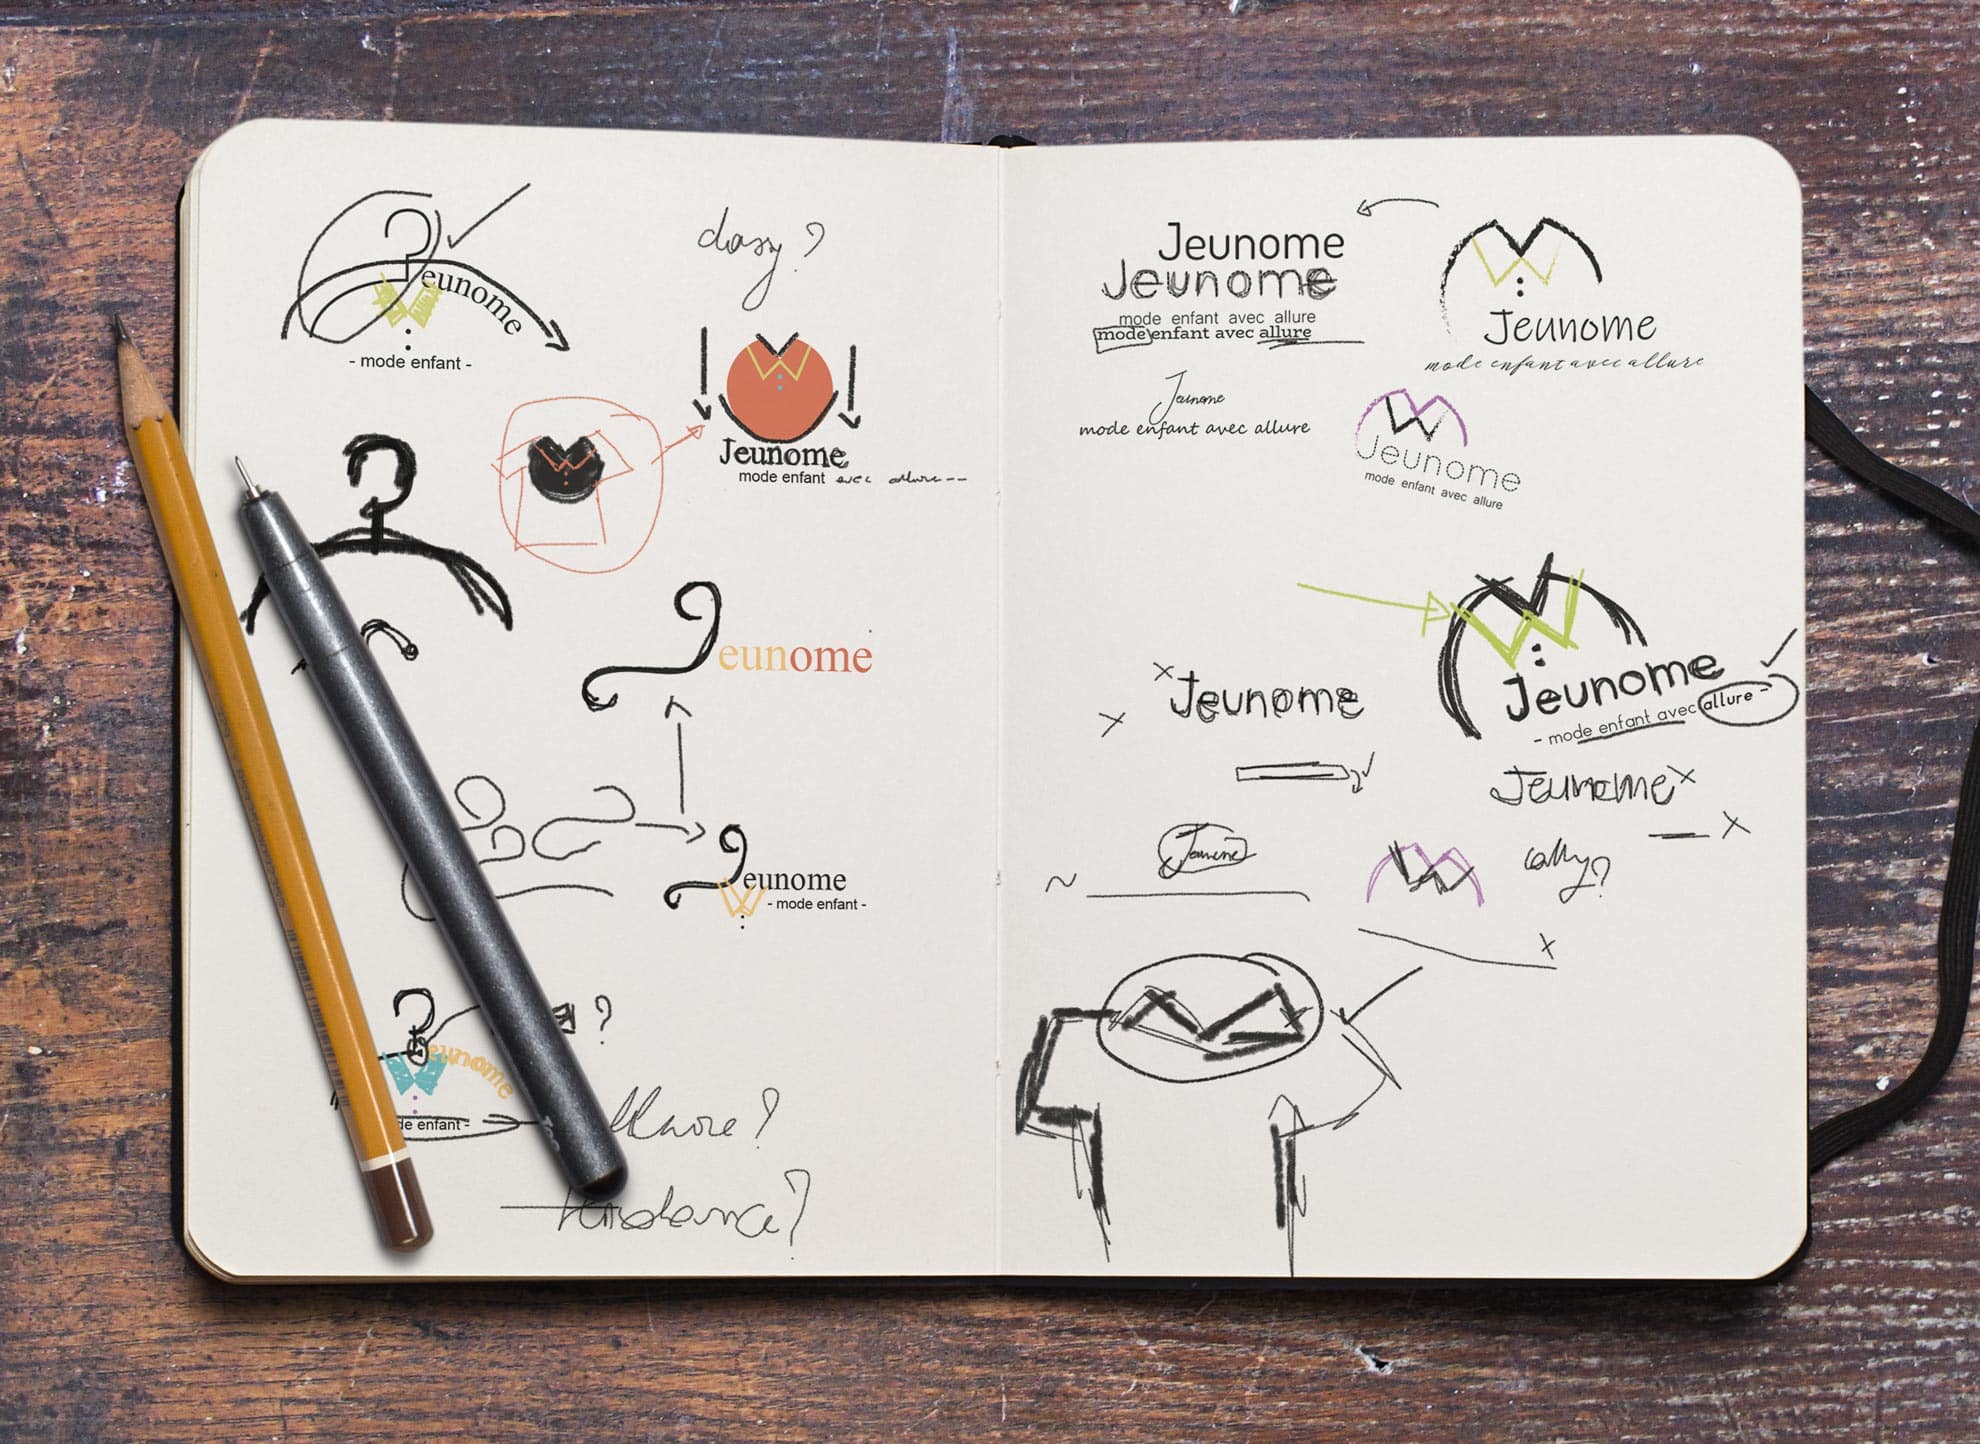 eunome
- mode enfant -
classy ?
Jeunome
mode enfant avec allure
eunome
eunome
- mode enfant -
?
eunome
de enfant -
Allure ?
tendance ?
Jeunome
Jeunome
mode enfant avec allure
mode enfant avec allure
Jeunome
mode enfant avec allure
Jeunome
mode enfant avec allure
Jeunome
mode enfant avec allure
Jeunome
- mode enfant avec allure -
Jeunome
Jeunome